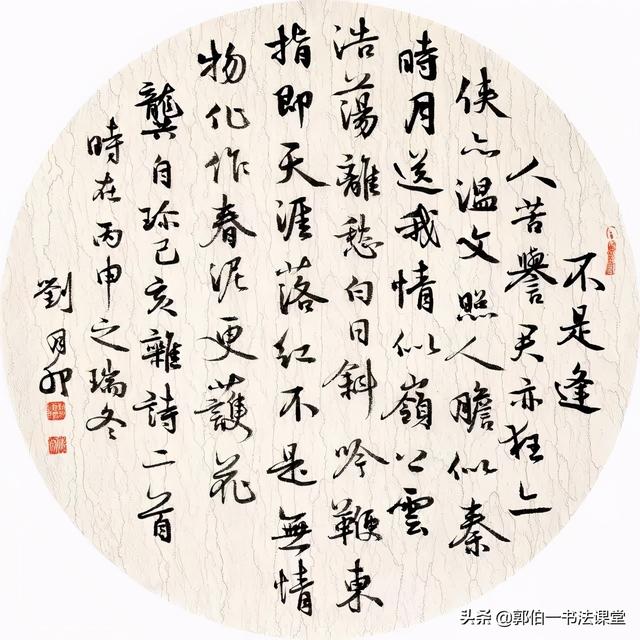 不是逢
人苦譽君亦狂亦
侠亦溫文照人膽似秦
時月送我情似嶺上雲
浩蕩離愁白日斜吟鞭東
指即天涯落紅不是無情
物化作春泥更護花
龔自珍己亥雜詩二首
時在丙申之瑞冬
劉月卯
头条 @郭伯一书法课堂